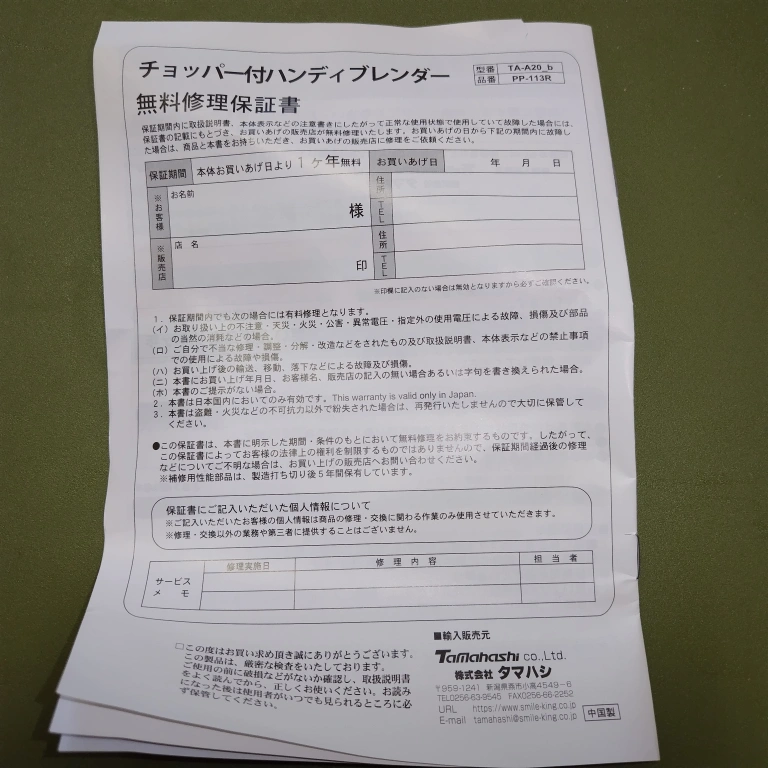 チョッパー付ハンディブレンダー
型番 TA-A20_b
品番 PP-113R
無料修理保証書
保証期間内に取扱説明書、本体表示などの注意書きにしたがって正常な使用状態で使用していて故障した場合には、
保証書の記載にもとづき、お買いあげの販売店が無料修理いたします。お買いあげの日から下記の期間内に故障し
た場合は、商品と本書をお持ちいただき、お買いあげの販売店に修理をご依頼ください。
保証期間 本体お買いあげ日より1ヶ年無料 お買いあげ日 年 月 日
※お客様 お名前 様 住所 TEL
※販売店 店名 印 住所 TEL
※印欄に記入のない場合は無効となりますから必ずご確認ください。
1. 保証期間内でも次の場合には有料修理となります。
(イ)お取り扱い上の不注意・天災・火災・公害・異常電圧・指定外の使用電圧による故障、損傷及び部品
の当然の消耗などの場合。
(ロ)ご自分で不当な修理・調整・分解・改造などをされたもの及び取扱説明書、本体表示などの禁止事項
での使用による故障や損傷。
(ハ)お買い上げ後の輸送、移動、落下などによる故障及び損傷。
(ニ)本書にお買い上げ年月日、お客様名、販売店の記入の無い場合あるいは字句を書き換えられた場合。
(ホ)本書のご提示がない場合。
2. 本書は日本国内においてのみ有効です。This warranty is valid only in Japan.
3. 本書は盗難・火災などの不可抗力以外で紛失された場合は、再発行いたしませんので大切に保管して
ください。
●この保証書は、本書に明示した期間・条件のもとにおいて無料修理をお約束するものです。したがって、
この保証書によってお客様の法律上の権利を制限するものではありませんので、保証期間経過後の修理
などについてご不明な場合は、お買い上げの販売店へお問い合わせください。
※補修用性能部品は、製造打ち切り後5年間保有しています。
保証書にご記入いただいた個人情報について
※ご記入いただいたお客様の個人情報は商品の修理・交換に関わる作業のみ使用させていただきます。
※修理・交換以外の業務や第三者に提供することはございません。
サービスメモ 修理実施日 修理内容 担当者
□この度はお買い求め頂き誠にありがとうございます。
この製品は、厳密な検査をいたしております。
ご使用の前に破損などがないか確認し、取扱説明書
をよく読んでから、正しくお使いください。お読み
になった後は使用者がいつでも見られるところに必
ず保管してください。
■輸入販売元
Tamahashi co.,Ltd.
株式会社 タマハシ
〒959-1241 新潟県燕市小高4549-6
TEL0256-63-9545 FAX0256-66-2252
URL https://www.smile-king.co.jp
E-mail tamahashi@smile-king.co.jp
中国製